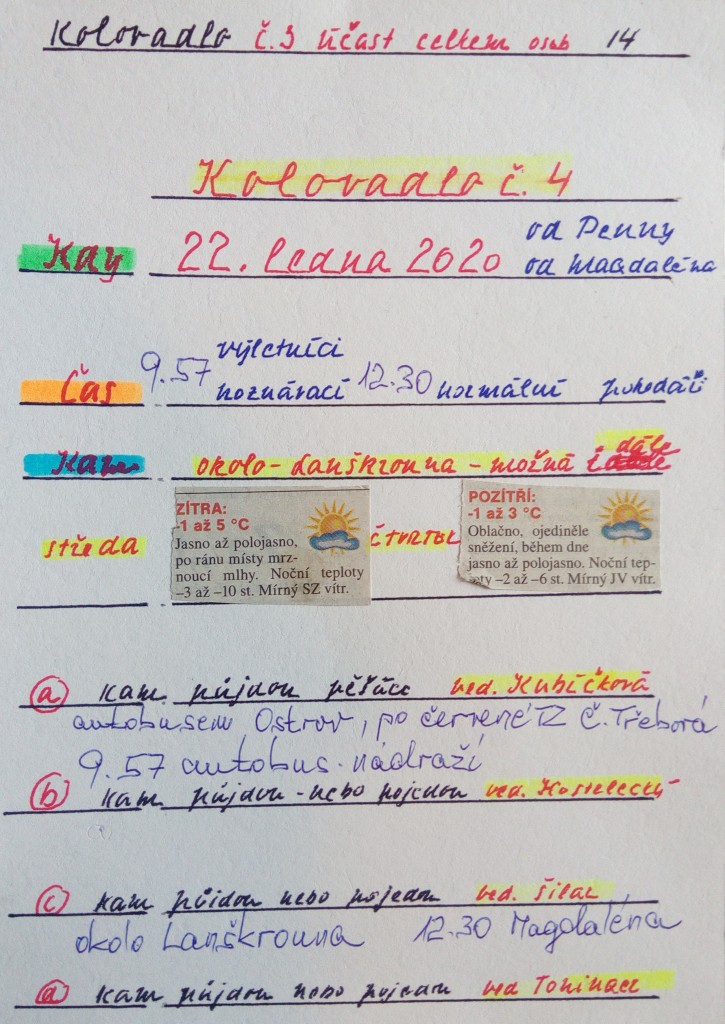 Kolovadlo č.3 účast celkem osob 14
Kolovadlo č. 4
Kdy 22. ledna 2020 od Penny
od Magdaléna
Čas 9.57 výletníci
poznávací 12.30 normální pohodáři
Kam okolo - Lanškrouna - možná i dále
středa
ZÍTRA:
-1 až 5 °C
Jasno až polojasno,
po ránu místy mrz-
noucí mlhy. Noční teploty
–3 až –10 st. Mírný SZ vítr.
čtvrtek
POZÍTŘÍ:
-1 až 3 °C
Oblačno, ojediněle
sněžení, během dne
jasno až polojasno. Noční tep-
loty –2 až –6 st. Mírný JV vítr.
a) kam půjdou pěšáci ved. Kubíčková
autobusem Ostrov, po červené TZ Č. Třebová
9.57 autobus. nádraží
b) kam půjdou - nebo pojedou ved. Kostelecký
c) kam půjdou nebo pojedou ved. Šilar
okolo Lanškrouna 12.30 Magdaléna
d) kam půjdou nebo pojedou ved